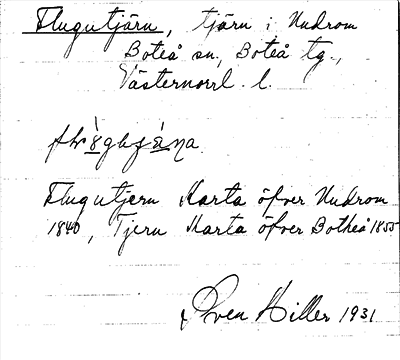 Flugutjärn, tjärn i Undrom
Boteå sn, Boteå tg.,
Västernorrl. l.
Flugutjern Karta öfver Undrom
1840, Tjern Karta öfver Botheå 1855
Sven Hiller 1931